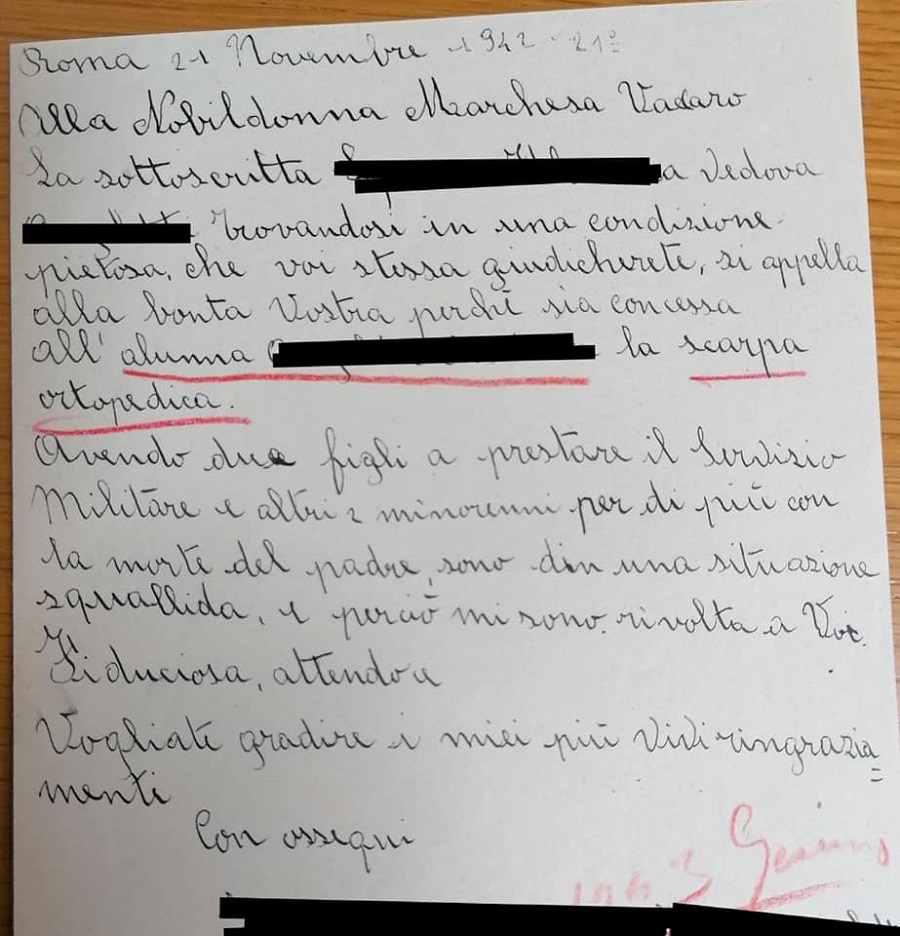 Roma 21 Novembre 1942 - 21º
Alla Nobildonna Marchesa Vadaro
La sottoscritta a Vedova
trovandosi in una condizione
pietosa, che voi stessa giudicherete, si appella
alla bonta Vostra perchè sia concessa
all' alunna la scarpa
ortopedica.
Avendo due figli a prestare il Servizio
Militare e altri 2 minorenni per di più con
la morte del padre, sono in una situazione
squallida, e perciò mi sono rivolta a Voi.
Fiduciosa, attendo e
Vogliate gradire i miei più vivi ringrazia=
menti
Con ossequi